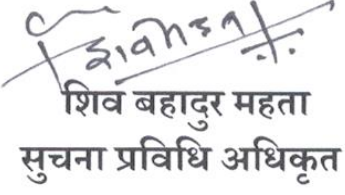 शिव बहादुर महता
सुचना प्रविधि अधिकृत